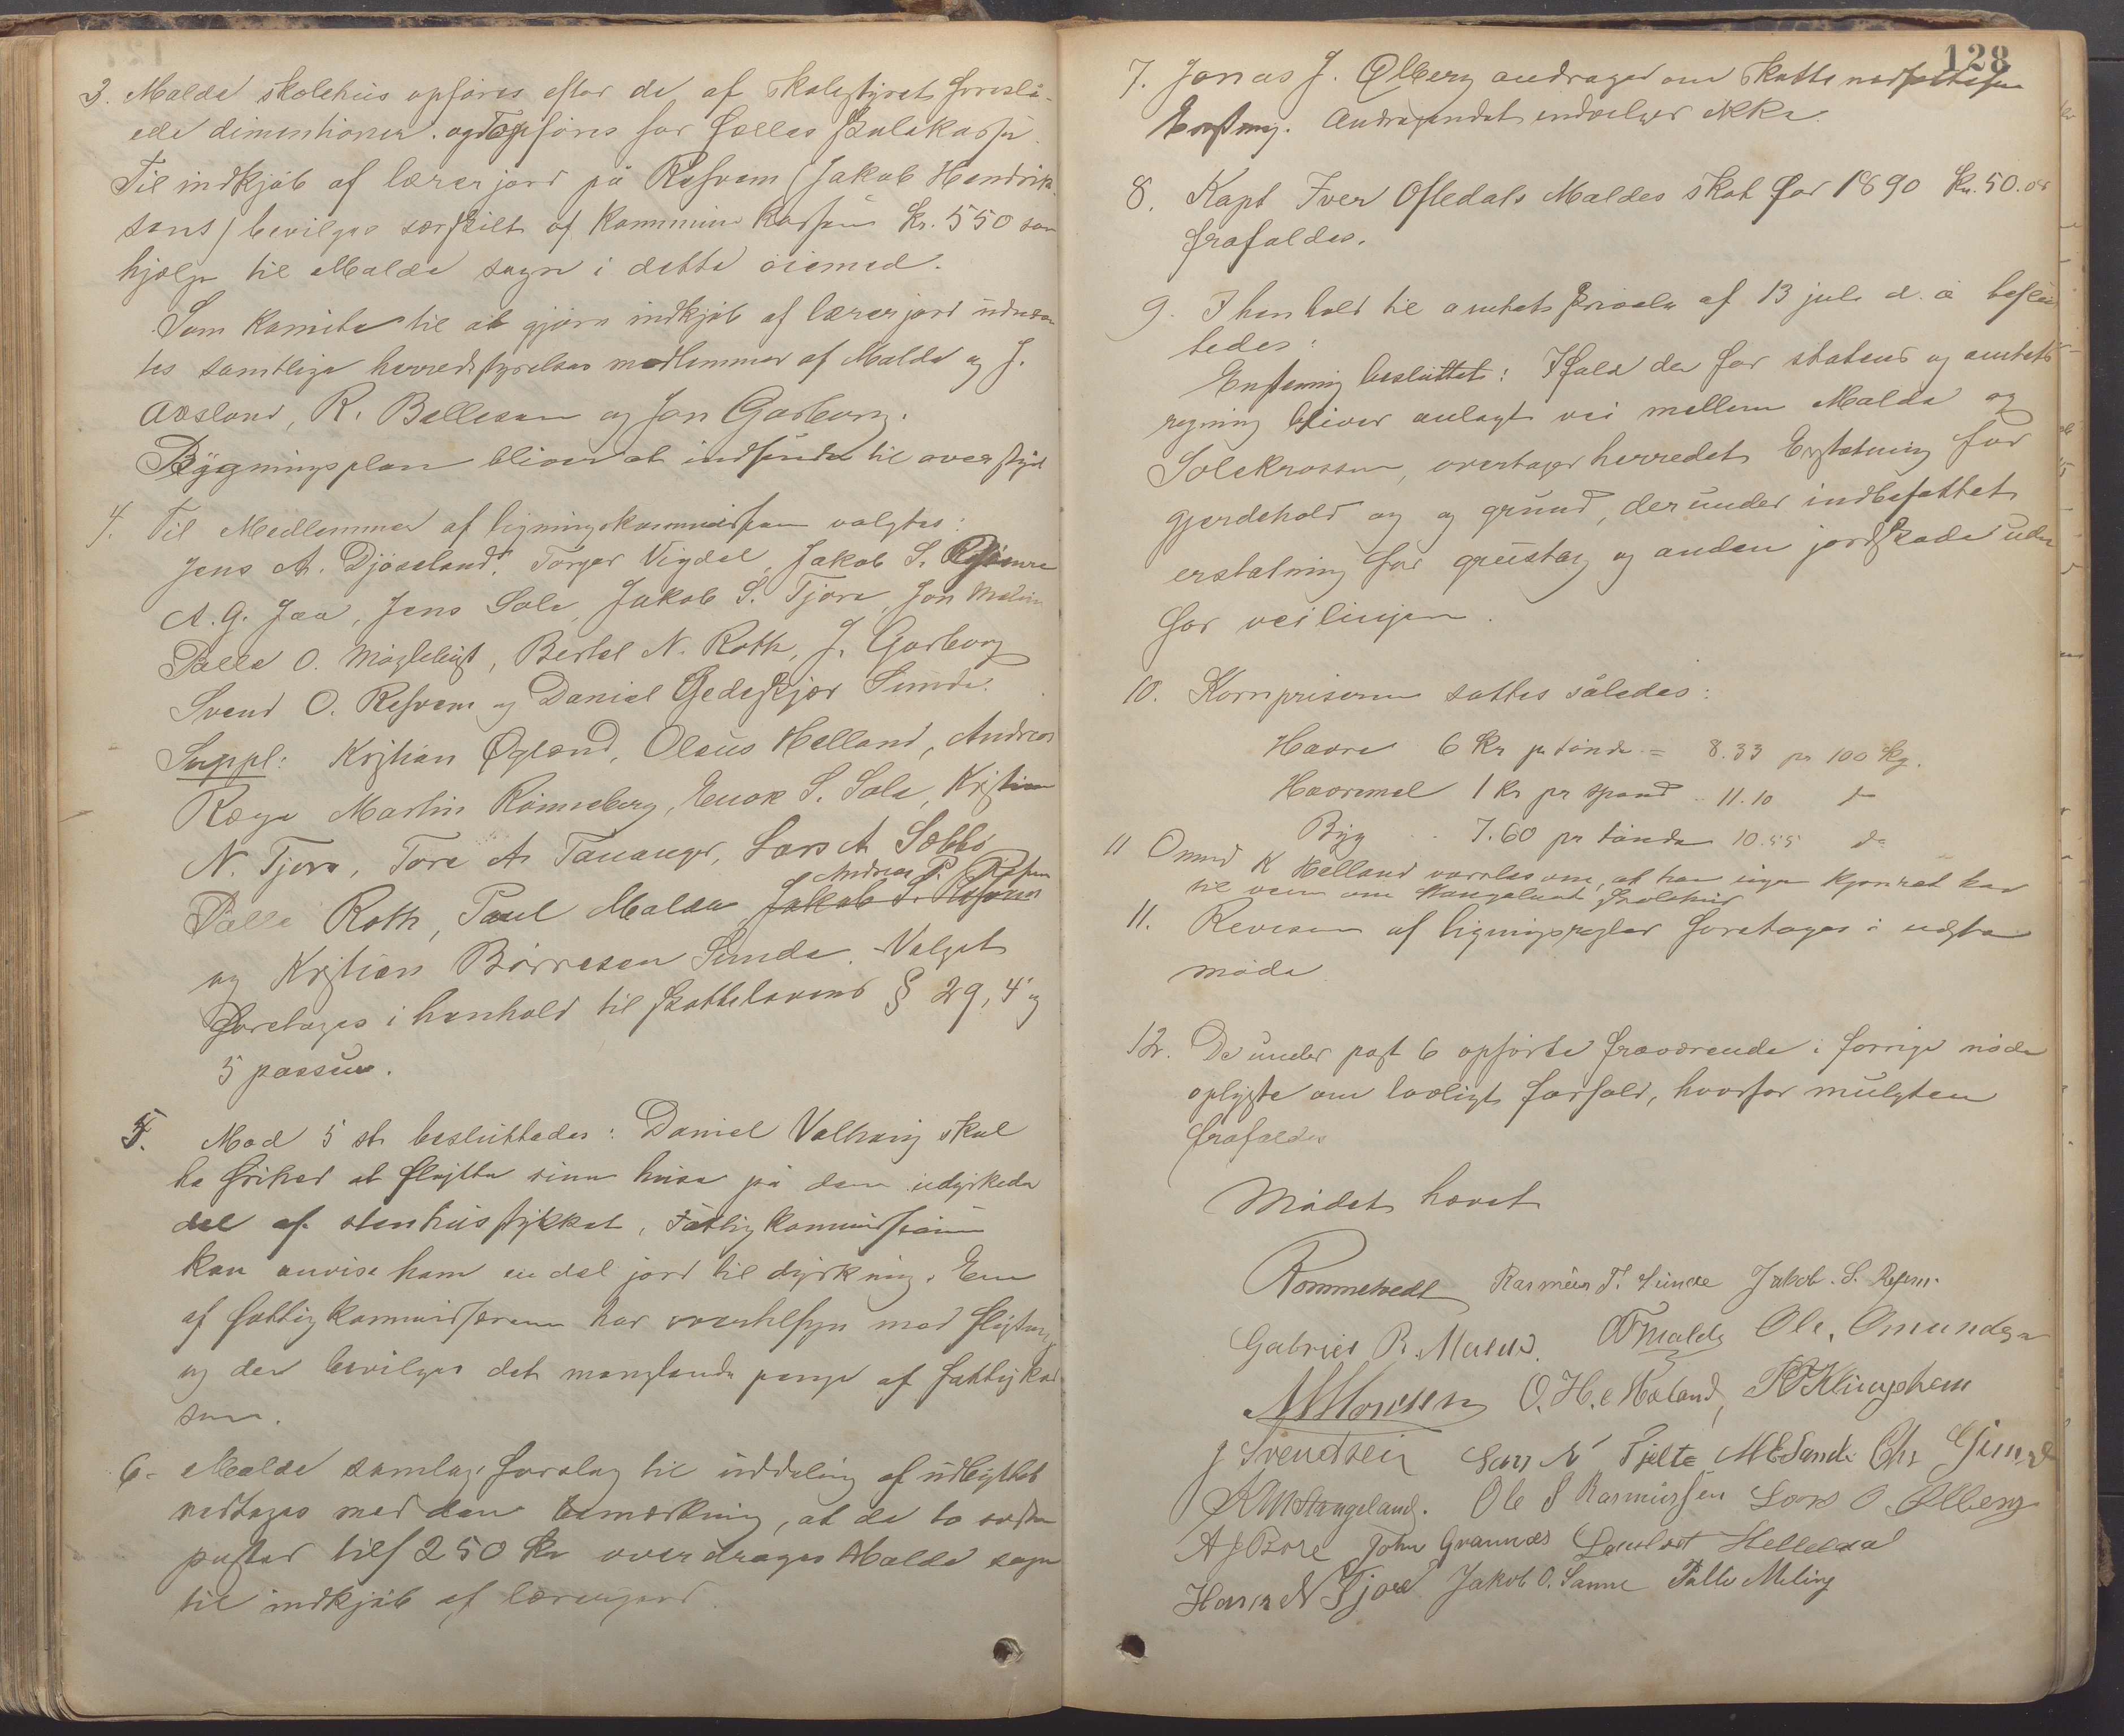 3. Malde skolehus opføres efter de af skolestyret foreslå-
ede dimentioner. og opføres for fælles skolekasse.
Til indkjøb af lærerjord på Refsvem (Jakob Hendrik-
sens) bevilges særskilt af kommunekassen kr. 550 som
hjælp til Malde sogn i dette öiemed.
Som komite til at gjöre indkjøb af lærerjord udnævn
tes samtlige herredsstyrelses medlemmer af Malde og J.
Aasland, R. Bellesen og Jon Gorborg.
Bygningsplan bliver at indsende til overstyret
4. Til Medlemmer af ligningskommissionen valgtes:
Jens A. Djöseland, Torger Vigdel, Jakob S.
A. G. Jaa, Jens Sole, Jakob S. Tjora, Jon
Palle O. Myklebust, Bertel N. Roth, J. Gorborg
Svend O. Refsvem og Daniel Gedeskjær Sunde.
Suppl: Kristian Øgland, Olaus Helland, Andreas
Ræge Martin Rönneberg, Enok S. Sola, Kristian
N. Tjora, Tore A. Tananger, Lars A. Sæbbö
Andreas P.
Palle Roth, Paul Malde Jakob S. Refsvem
og Kristian Börresen Sunde. Valget
foretages i henhold til skattelovens § 29, 4' og
5 passus.
5. Mod 5 st. besluttedes: Daniel Valhaug skal
ha frihed at fløtte sine huse på den udyrkede
del af stenhusstykket, Fattigkommissionen
kan anvise ham en del jord til dyrkning. En
af fattigkommissærerne har overtilsyn med flytning
og der bevilges det manglende penge af fattigkas
sen.
6. Malde samlags forslag til uddeling af udbyttet
vedtages med den bemærkning, at de to sidste
poster tils 250 kr overdrages Malde sogn
til indkjøb af lærerjord.
128
7. Jonas J. Ølberg andrager om skattenedsættelse
Enstemg. Andragendet indvilges ikke.
8. Kapt Iver Oftedals Maldes skat for 1890 kr. 50.08
frafaldes.
9. I henhold til amtets skrivelse af 13 juli d. å beslut
tedes:
Enstemig besluttet: Ifald der for statens og amtets
regning bliver anlagt vei mellem Malde og
Solekrossen, overtager herredet Erstatning for
gjerdehold og og grund, derunder indbefattet
erstatning for grustag og anden jordskade uden
for veilinjen.
10. Kornpriserne sattes således:
Havre 6 kr pr tönde = 8.33 pr 100 kg.
Havremel 1 kr pr spand 11.10 do
Byg 7.60 pr tönde 10.55 do
11 Omund K Helland varsles om, at han ingen kjøreret har
til veien om Stangeland skolehus
11. Revision af ligningsregler foretages i næste
møde.
12. De under post 6 opførte fraværende i forrige møde
oplyste om lovligt forfald, hvorfor mulkten
frafaldes
Mödet hævet
Rommetvedt Rasmus T. Sunde Jakob. S. Refsvm.
Gabriel R. Meling. Malde Ole. Omundsen
O. H. Haland, Klingsheim
J Svendsen Lars N Tjelta M E Sande Chr Gimre
Stangeland. Ole S Rasmussen Lars O. Ølberg
A J Bore John Grannes Lauritz Helledal
Hans N Tjora Jakob O. Sømme Palle Meling